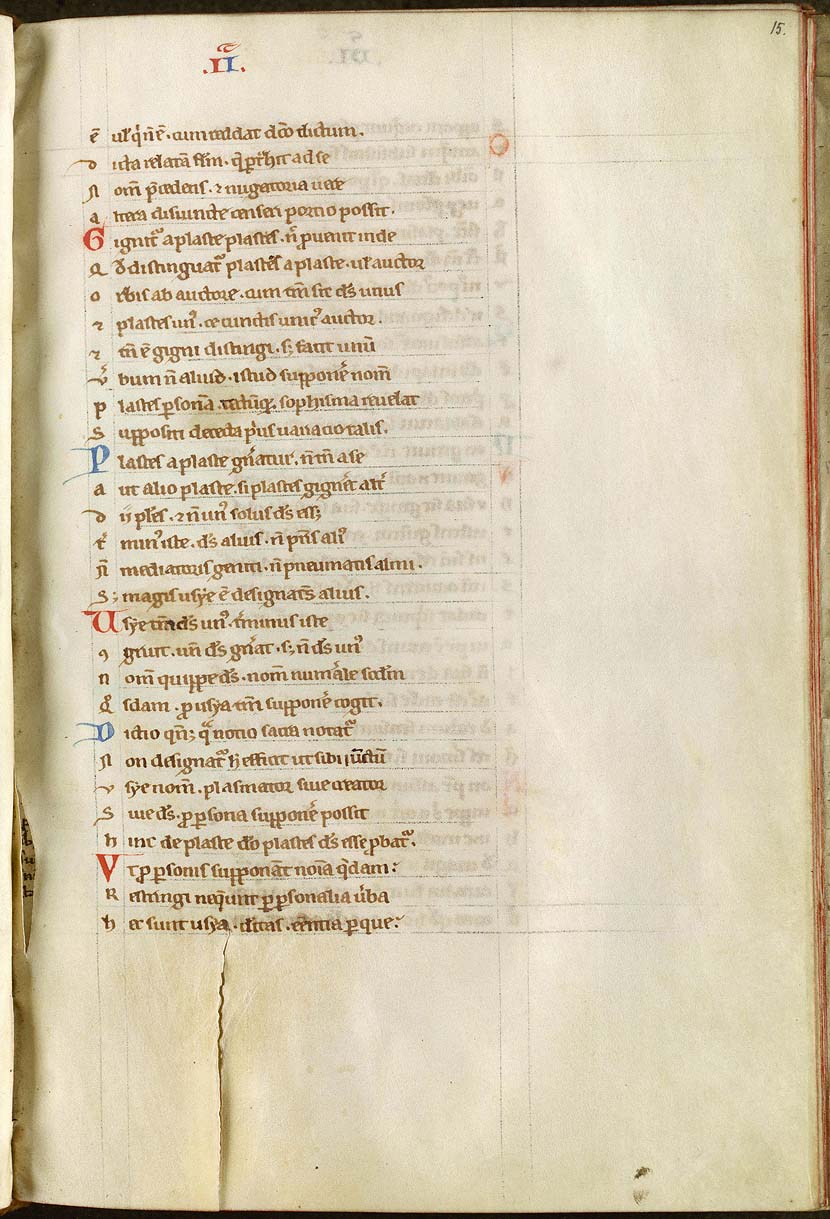 15.
.II.
ē ul' q' n̄ ē. cum reddat dc̄o dictum.
dicta relatā
Nom p̄cedens. ⁊ nugatoria uere
altera disiuncte censeri portio possit.
Gignit᷑ a plaste plastes. n̄ ꝓuenit inde
Qd̓ distinguat᷑ plastes a plaste. ul' auctor
orbis ab auctore. cum tm̄ sit ds̄ unus
⁊ plastes un᷒. ce cunctis unic᷒ auctor.
⁊ tn̄ ē gigni distingi. s; facit unū
v̓bum n̄ aliud. istud supponē nom̄
plastes ꝑsonā. sophisma reuelat
Suppositi deceda p̓us uariacio talis.
Plastes a plaste gn̓atur. n̄ tn̄ a se
aut alio plaste. si plastes gign̓et alt̓
dij pl̓es. ⁊ n̄ un᷒ solus ds̄ ess;
t̓min᷒ iste. ds̄ alius. n̄ pr̄is ali᷒
n̄ mediatoris geniti. n̄ pneumatis almi.
S; magis usye ē designat̓s alius.
Usye tn̄ ds̄ un᷒. t̓minus iste
ꝯgruit. un̄ ds̄ gn̓at. s; n̄ ds̄ un᷒
nom̄ quippe ds̄. nom̄ num̓ale sc̄dm̄
q̓sdam. ꝓ usya tm̄ supponē cogit.
Dictio qn̄; q̄ notio sacra notat᷑
Non designat᷑ h̄ efficit ut sibi iūctū
vsye nom̄. plasmator siue creator
Siue ds̄. ꝓ ꝑsona supponē possit
hinc de plaste do plastes ds̄ esse ꝓbat᷑.
Vt ꝓ ꝑsonis supponāt nōia q̄dam:
Restringi neq̄unt ꝑ ꝑsonalia ūba
hec sunt usya. deitas. eentia ꝑque: